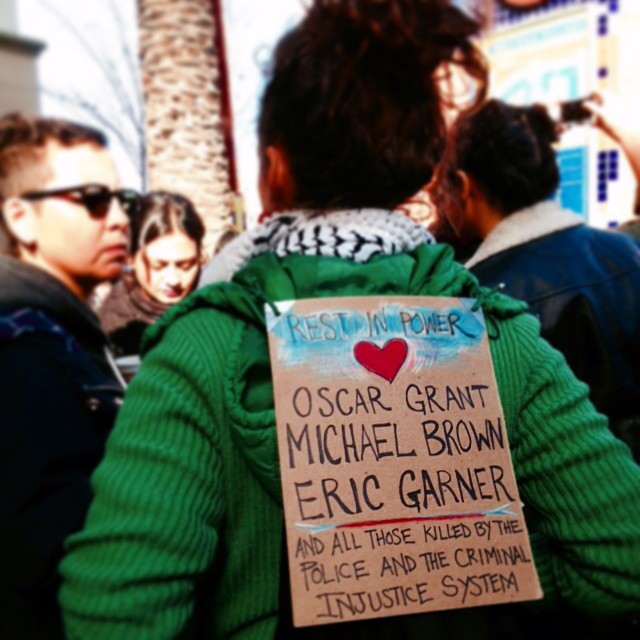 REST IN POWER
OSCAR GRANT
MICHAEL BROWN
ERIC GARNER
AND ALL THOSE KILLED BY THE
POLICE AND THE CRIMINAL
INJUSTICE SYSTEM